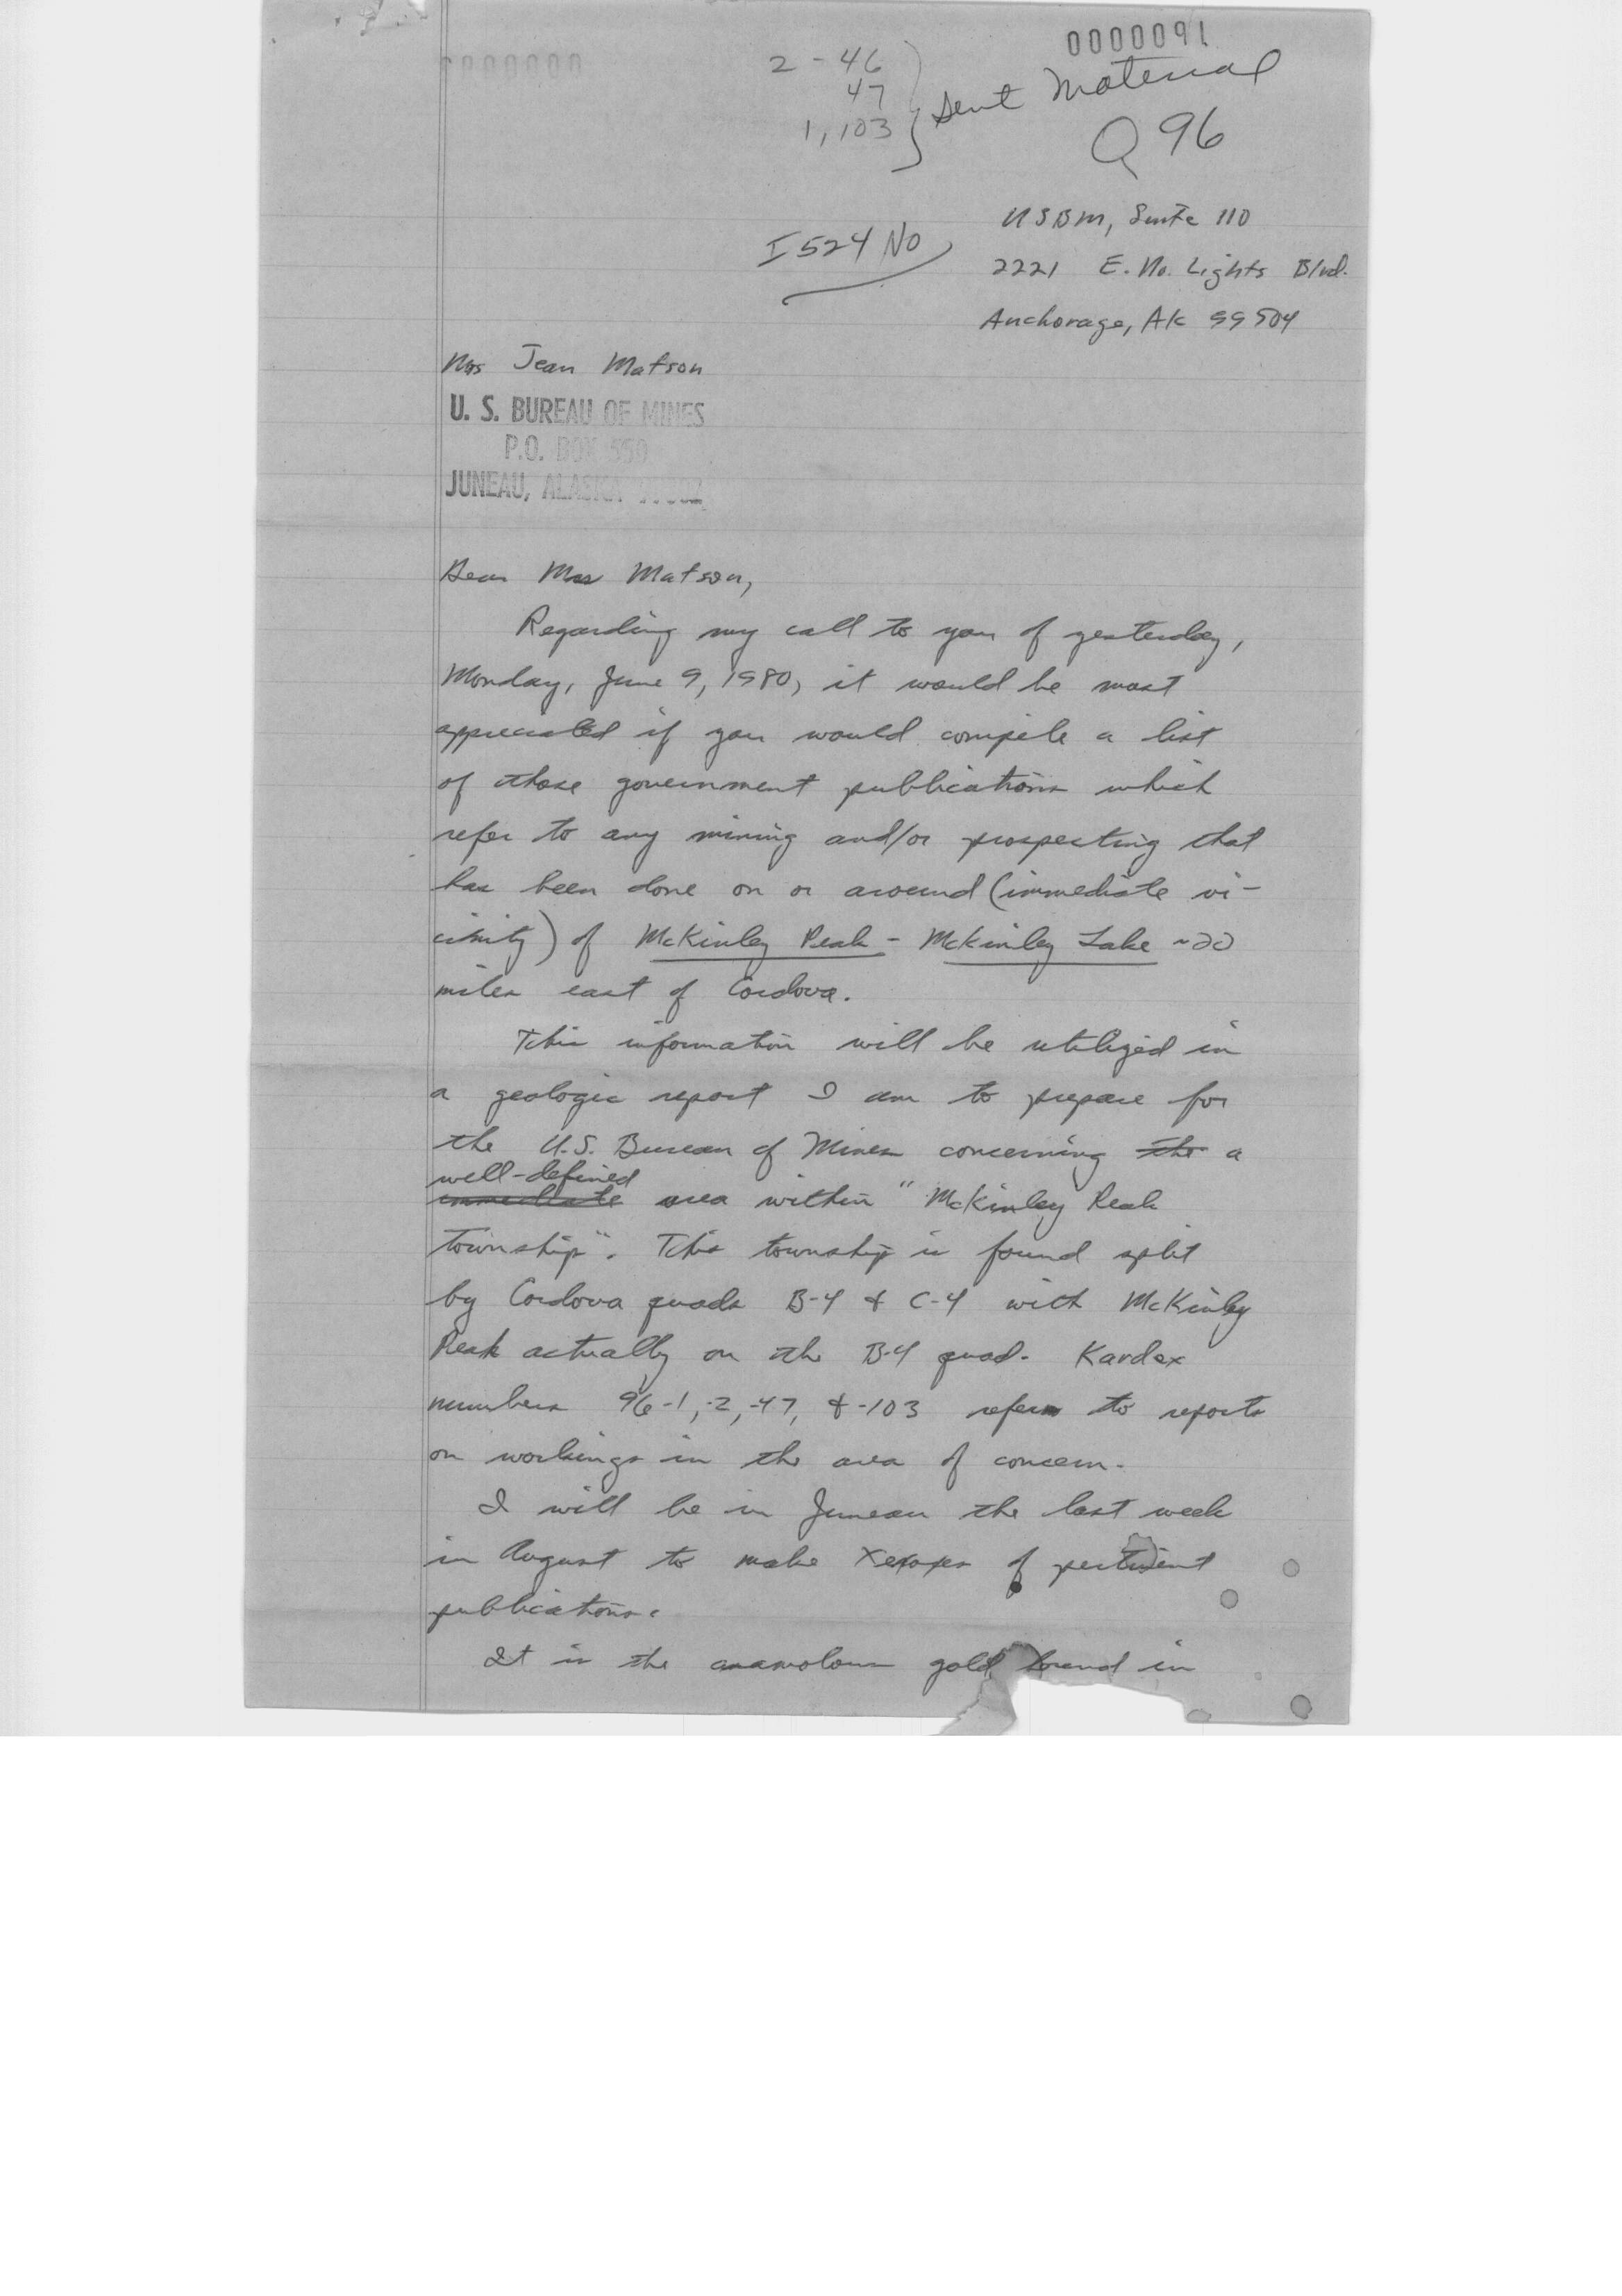 0000091
2 - 46
47
1,103
Sent Material
Q 96
I 524 No
USBM, Suite 110
2221 E. No. Lights Blvd.
Anchorage, AK 99504
Mrs Jean Matson
U. S. BUREAU OF MINES
P.O. BOX 550
JUNEAU, ALASKA
Dear Mrs Matson,
Regarding my call to you of yesterday,
Monday, June 9, 1980, it would be most
appreciated if you would compile a list
of those government publications which
refer to any mining and/or prospecting that
has been done on or around (immediate vi-
cinity) of McKinley Peak - McKinley Lake ~20
miles east of Cordova.
This information will be utilized in
a geologic report I am to prepare for
the U.S. Bureau of Mines concerning the a
well-defined
immediate area within "McKinley Peak
township". This township is found split
by Cordova quads B-4 & C-4 with McKinley
Peak actually on the B-4 quad. Kardex
numbers 96-1,-2,-47, & -103 refer to reports
on workings in the area of concern.
I will be in Juneau the last week
in August to make Xeroxes of pertinent
publications.
It is the anamolous gold found in